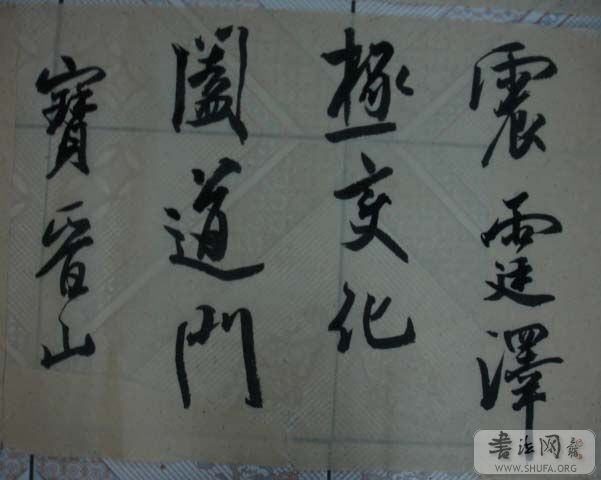 震霆澤
極变化
闔道門
寶晋山
书法网
WWW.SHUFA.ORG